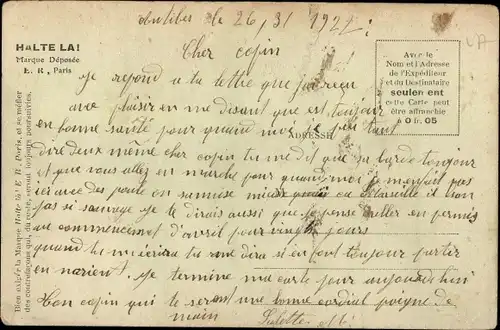 Antibes le 26/3/ 1922 :
HALTE LA!
Marque Déposée
E. R., Paris
Cher copin
Je repond a ta lettre que j'ai reçu
avec plaisir en me disant que est toujour
en bonne santé pour quand moi
dire deux même cher copin tu me dit que sa barde toujour
et que vous allez en marche pour quand moi
pas si sauvage je te dirais aussi que je pense aller en permis
au commencement d'avril pour vingt jours
quand tu m'écrira tu me dira si en font toujour partir
en norient. Je termine ma carte pour aujourd'hui
ton copin qui te serre une bonne cordial poigne de
main
ADRESSE
Avec le
Nom et l'Adresse
de l'Expéditeur
et du Destinataire
seulement
cette Carte peut
être affranchie
à 0 fr. 05
Bien exiger la Marque Halte là! E R Paris, et se méfier
des contrefaçons qui, du reste, seront toujours poursuivies.